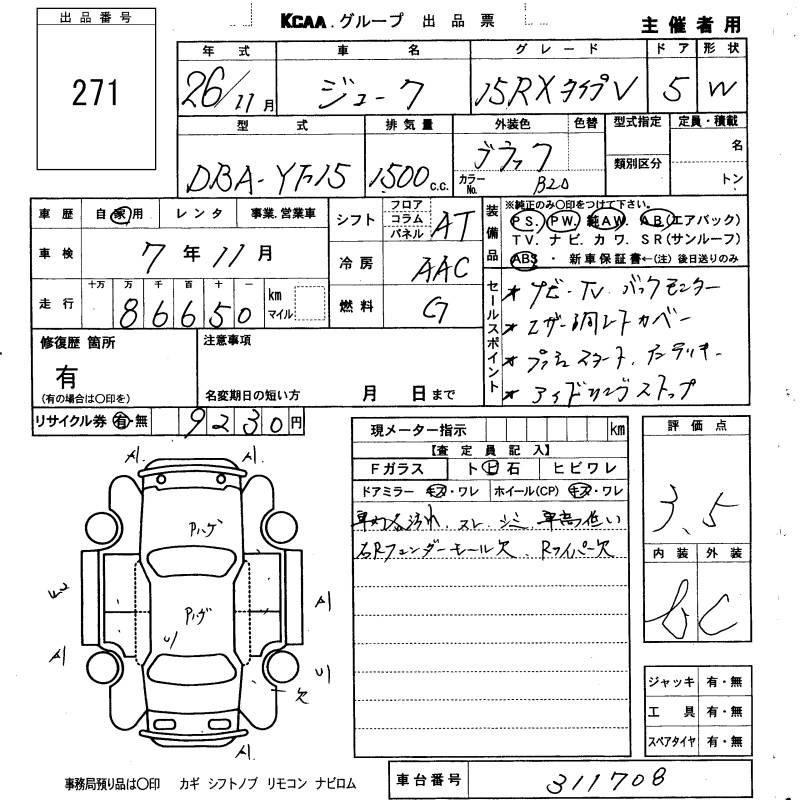 出品番号
271
KCAA.グループ 出品票
主催者用
年式 車名 グレード ドア 形状
26/11月 ジューク 15RXタイプV 5 W
型式 排気量 外装色 色替 型式指定 定員・積載
DBA-YF15 1500c.c. ブラック
名
類別区分
カラーNo. B20
トン
車歴 自家用 レンタ 事業.営業車
シフト フロア コラム パネル AT
装備品
※純正のみ〇印をつけて下さい。
PS. PW. 純AW. AB.(エアバック)
TV. ナビ. カワ. SR(サンルーフ)
ABS・新車保証書←(注)後日送りのみ
車検 7年11月
冷房 AAC
走行 十万 万 千 百 十 一
86650 km マイル
燃料 G
セールスポイント
* ナビ・TV バックモニター
* レザー調シートカバー
* プッシュスタート.
* アイドリングストップ
修復歴 箇所
有
(有の場合は〇印を)
注意事項
名変期日の短い方 月 日まで
リサイクル券 有・無 9230円
現メーター指示 km
【査定員記入】
Fガラス トビ石 ヒビワレ
ドアミラー キズ・ワレ ホイール(CP) キズ・ワレ
車内 汚れ スレ シミ 車高低い
右Rフェンダーモール欠 Rワイパー欠
評価点
3.5
内装 外装
b C
A1 A1
Pハゲ
Pハゲ
U1
A1
A1
U1
欠
A1
ジャッキ 有・無
工具 有・無
スペアタイヤ 有・無
事務局預り品は〇印 カギ シフトノブ リモコン ナビロム
車台番号 311708